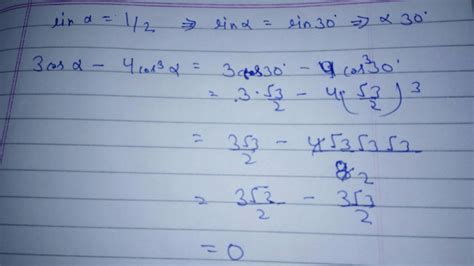 sin α = 1/2 ⇒ sin α = sin 30° ⇒ α 30°
3cos α − 4cos³ α = 3cos30° − 4cos³30°
= 3·√3/2 − 4(√3/2)³
= 3√3/2 − 4√3√3√3/8 2
= 3√3/2 − 3√3/2
= 0